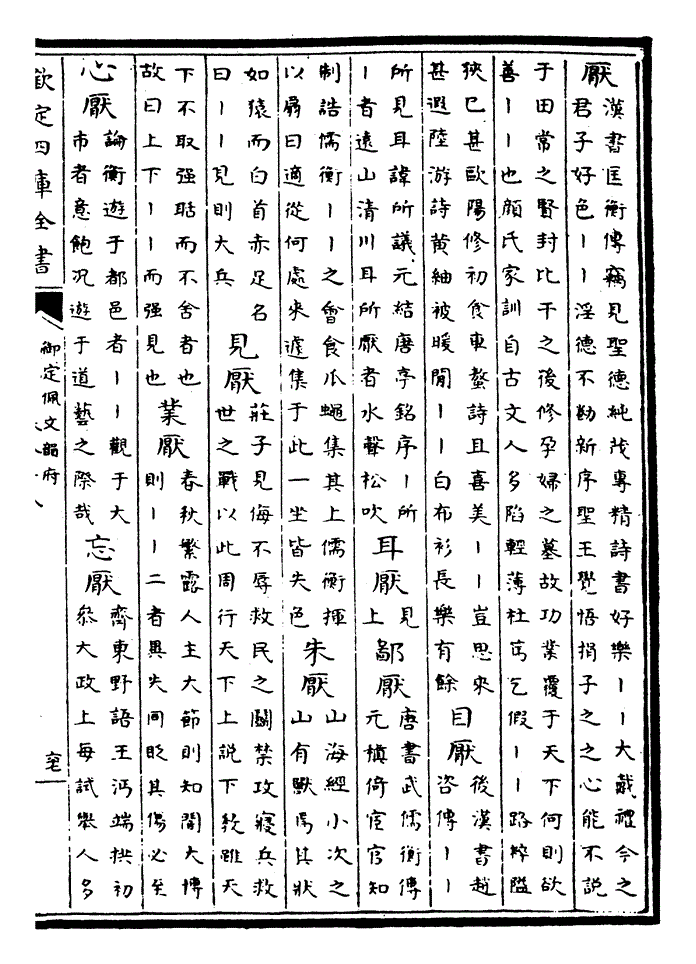 厭
漢書匡衡傳竊見聖德純茂專精詩書好樂丨丨大戴禮今之
君子好色丨丨淫德不勌新序聖王覺悟捐子之之心能不說
于田常之賢封比干之後修孕婦之墓故功業覆于天下何則欲
善丨丨也顔氏家訓自古文人多陷輕薄杜篤乞假丨丨路粹隘
狹已甚歐陽修初食車螯詩且喜美丨丨豈思來
甚遐陸游詩黃紬被暖閒丨丨白布衫長樂有餘
目厭
後漢書趙
咨傳丨丨
所見耳諱所議元結唐亭銘序丨所
丨者遠山清川耳所厭者水聲松吹
耳厭
見
上
鄙厭
唐書武儒衡傳
元稹倚宦官知
制誥儒衡丨丨之會食瓜蠅集其上儒衡揮
以扇曰適從何處來遽集于此一坐皆失色
朱厭
山海經小次之
山有獸焉其狀
如猿而白首赤足名
曰丨丨見則大兵
見厭
莊子見侮不辱救民之鬭禁攻寢兵救
世之戰以此周行天下上說下教雖天
下不取强聒而不舍者也
故曰上下丨丨而强見也
業厭
春秋繁露人主大節則知闇大博
則丨丨二者異失同貶其傷必至
心厭
論衡遊于都邑者丨丨觀于大
市者意飽况遊于道藝之際哉
忘厭
齊東野語王沔端拱初
叅大政上每試舉人多
欽定四庫全書
御定佩文韻府